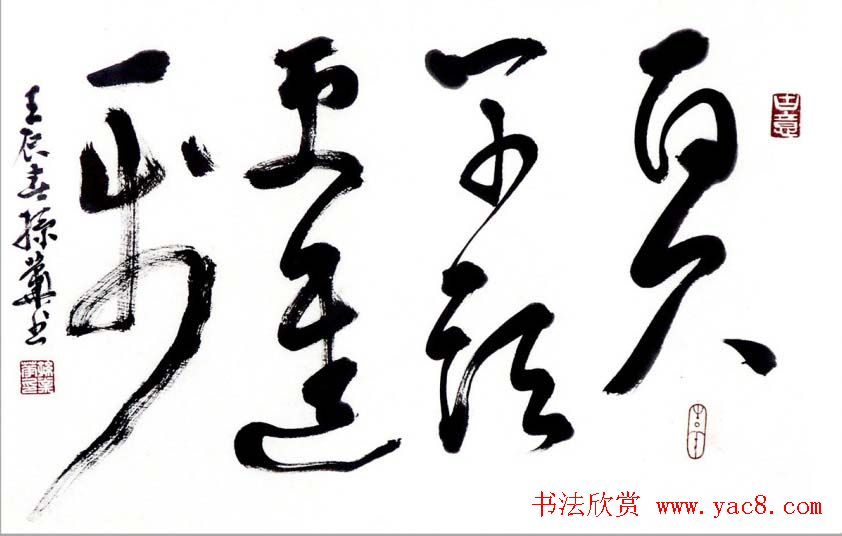 百尺
竿頭
更進
一步
壬辰春孫书
古意
书法欣赏 www.yac8.com